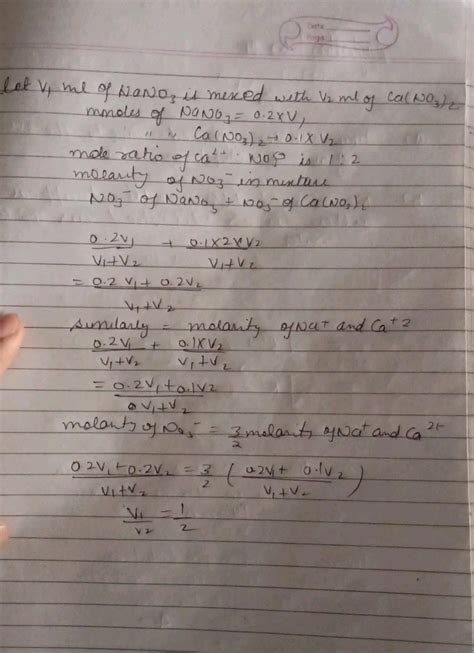 Date
Page
Let V₁ ml of NaNO₃ is mixed with V₂ ml of Ca(NO₃)₂
mmoles of NaNO₃ = 0.2×V₁
" " Ca(NO₃)₂ → 0.1×V₂
mole ratio of Ca²⁺ : NO₃⁻ is 1:2
molarity of NO₃⁻ in mixture
NO₃⁻ of NaNO₃ + NO₃⁻ of Ca(NO₃)₂
0.2V₁/V₁+V₂ + 0.1×2×V₂/V₁+V₂
= 0.2V₁+0.2V₂/V₁+V₂
similarly = molarity of Na+ and Ca+2
0.2V₁/V₁+V₂ + 0.1×V₂/V₁+V₂
= 0.2V₁+0.1V₂/V₁+V₂
molarity of NO₃⁻ = 3/2 molarity of Na⁺ and Ca²⁺
0.2V₁+0.2V₂/V₁+V₂ = 3/2 (0.2V₁+0.1V₂/V₁+V₂)
V₁/V₂ = 1/2